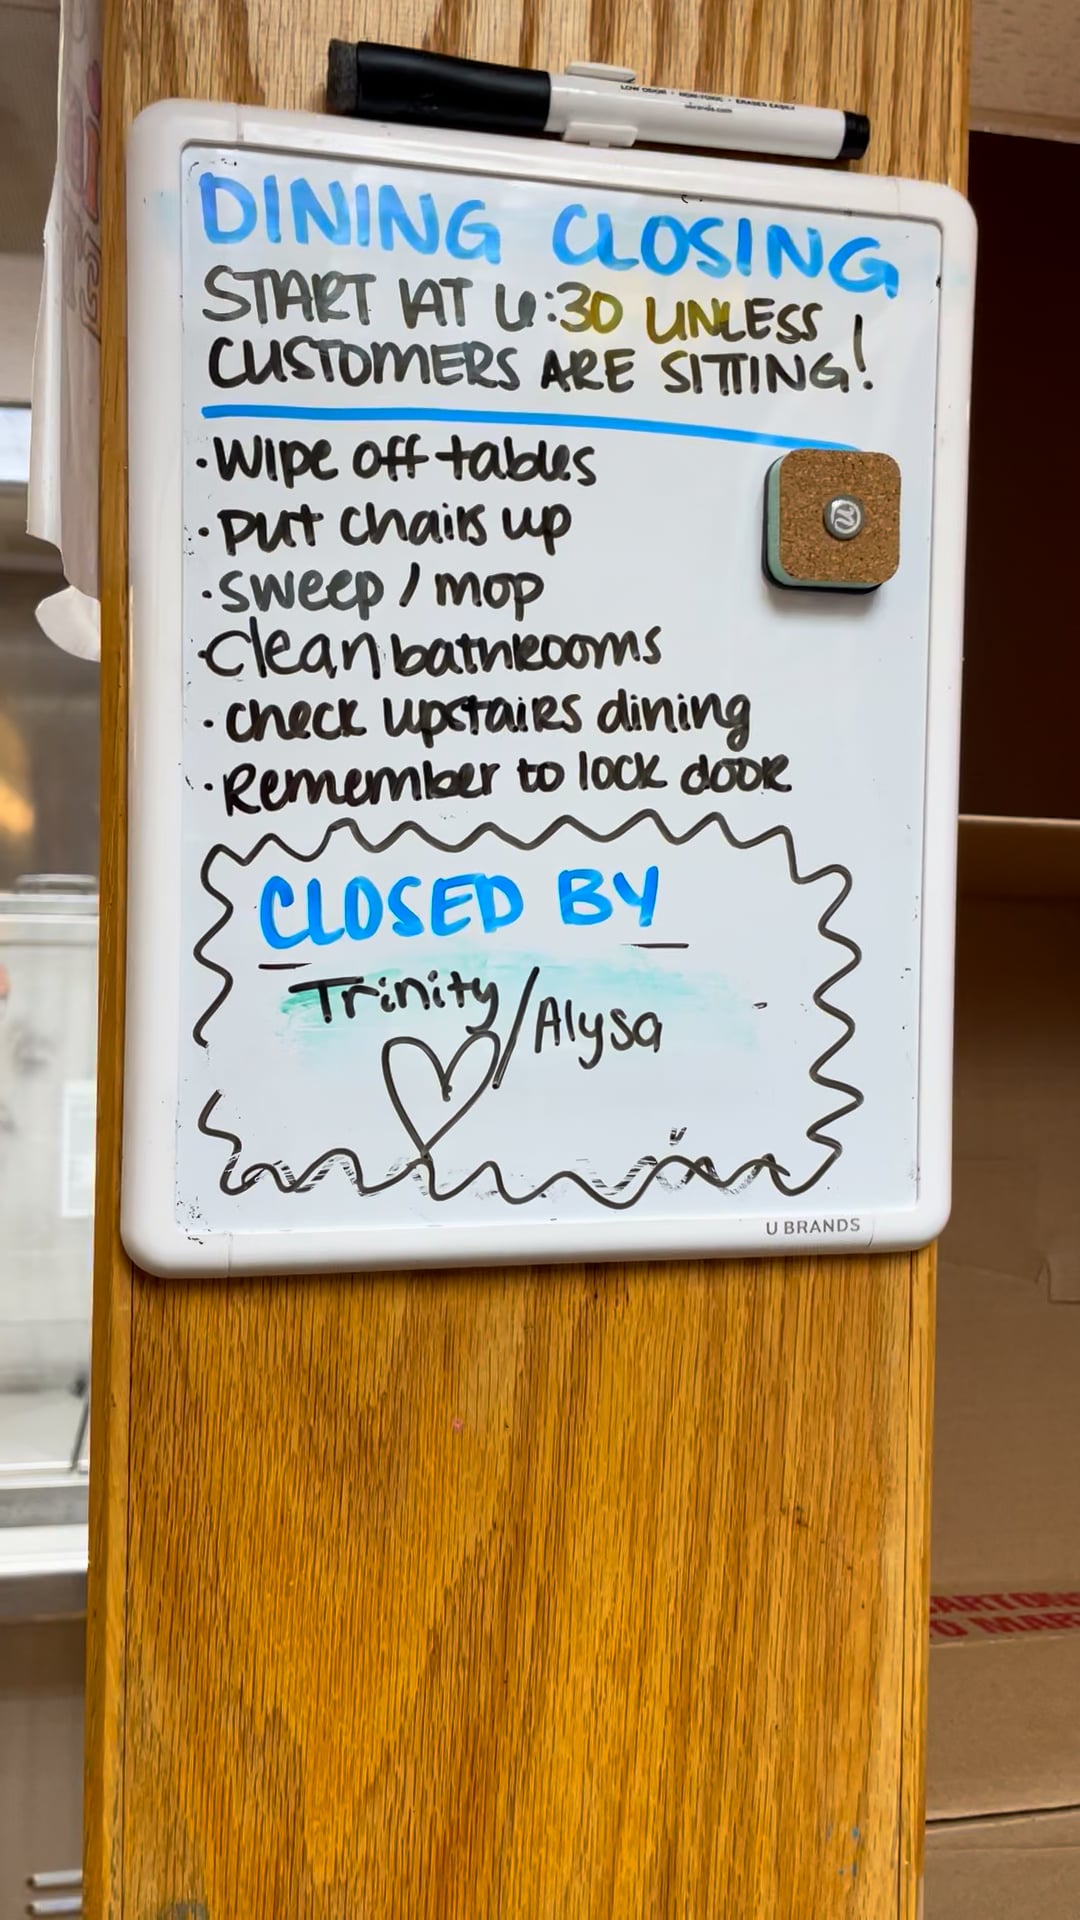 LOW ODOR • NON-TOXIC • ERASES EASILY
ubrands.com
DINING CLOSING
START AT 6:30 UNLESS
CUSTOMERS ARE SITTING!
• Wipe off tables
• Put chairs up
• Sweep / mop
• Clean bathrooms
• Check upstairs dining
• Remember to lock door
CLOSED BY
Trinity / Alysa
U BRANDS